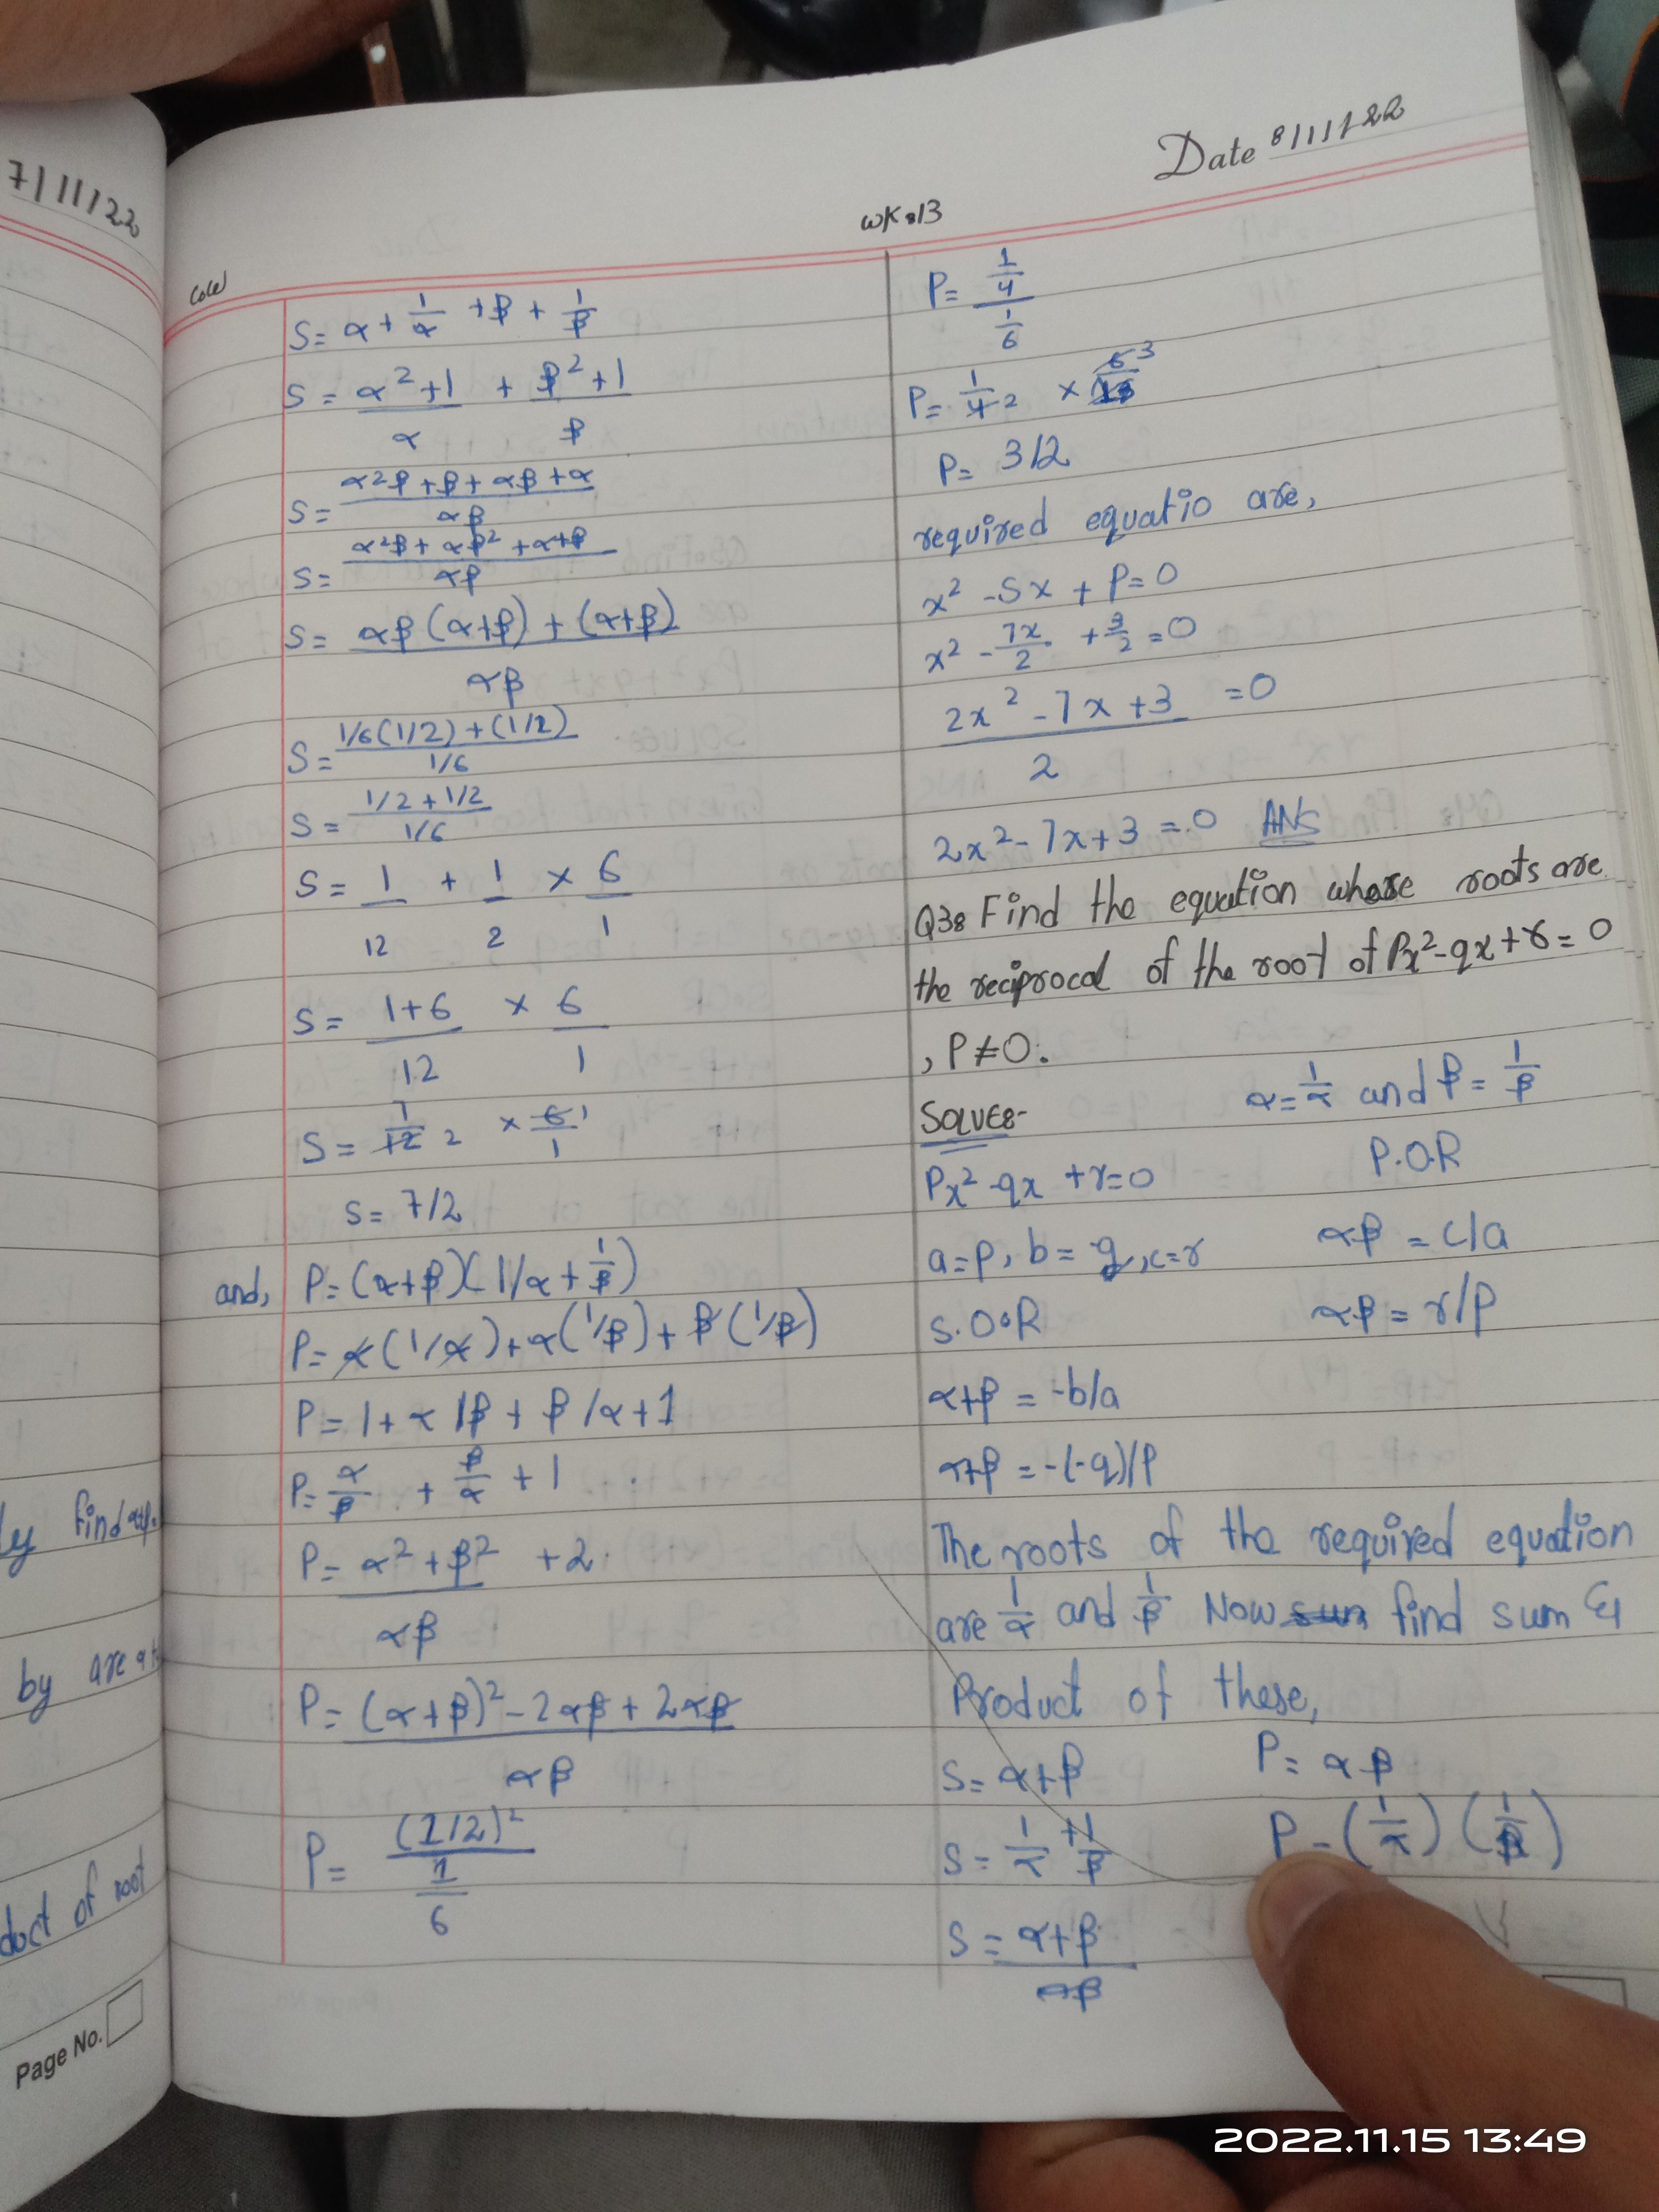 7/11/22
ly find α+β.
by are α+
duct of root
Page No.
Date 8/11/22
WK:13
CW
S= α + 1/α + β + 1/β
S = α²+1/α + β²+1/β
S= α²β + β + αβ + α / αβ
S= α²β + αβ² + α+β / αβ
S= αβ(α+β) + (α+β) / αβ
S= 1/6(1/2) + (1/2) / 1/6
S = 1/2 + 1/2 / 1/6
S = 1/12 + 1/2 × 6/1
S = 1+6/12 × 6/1
S = 7/12 2 × 6/1 1
S= 7/2
and, P= (α+β)(1/α + 1/β)
P= α(1/α) + α(1/β) + β(1/β)
P= 1 + α/β + β/α + 1
P= α/β + β/α + 1
P= α² + β² / αβ + 2
P= (α+β)² - 2αβ + 2αβ / αβ
P= (1/2)² / 1/6
P= 1/4 / 1/6
P= 1/4 2 × 6 3
P= 3/2
required equatio are,
x² - Sx + P = 0
x² - 7x/2 + 3/2 = 0
2x² - 7x + 3 / 2 = 0
2x² - 7x + 3 = 0 ANS
Q3: Find the equation whose roots are
the reciprocal of the root of Px²-qx+r=0
, P≠0.
SOLVE:- α = 1/α and β = 1/β
Px² - qx + r = 0 P.O.R
a=p, b= q, c=r αβ = c/a
S.O.R αβ = r/p
α+β = -b/a
α+β = -(-q)/P
The roots of the required equation
are 1/α and 1/β Now find sum &
Product of these,
S= α+β P= αβ
S= 1/α + 1/β P= (1/α) (1/β)
S= α+β / αβ
2022.11.15 13:49